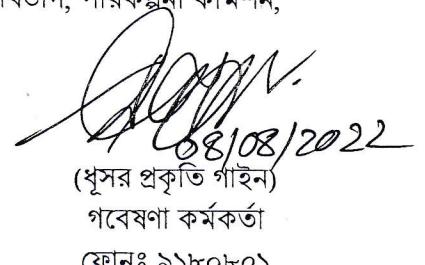 পরিকল্পনা কমিশন,
08/08/2022
(ধূসর প্রকৃতি গাইন)
গবেষণা কর্মকর্তা
ফোনঃ ৯১৮০৮০১